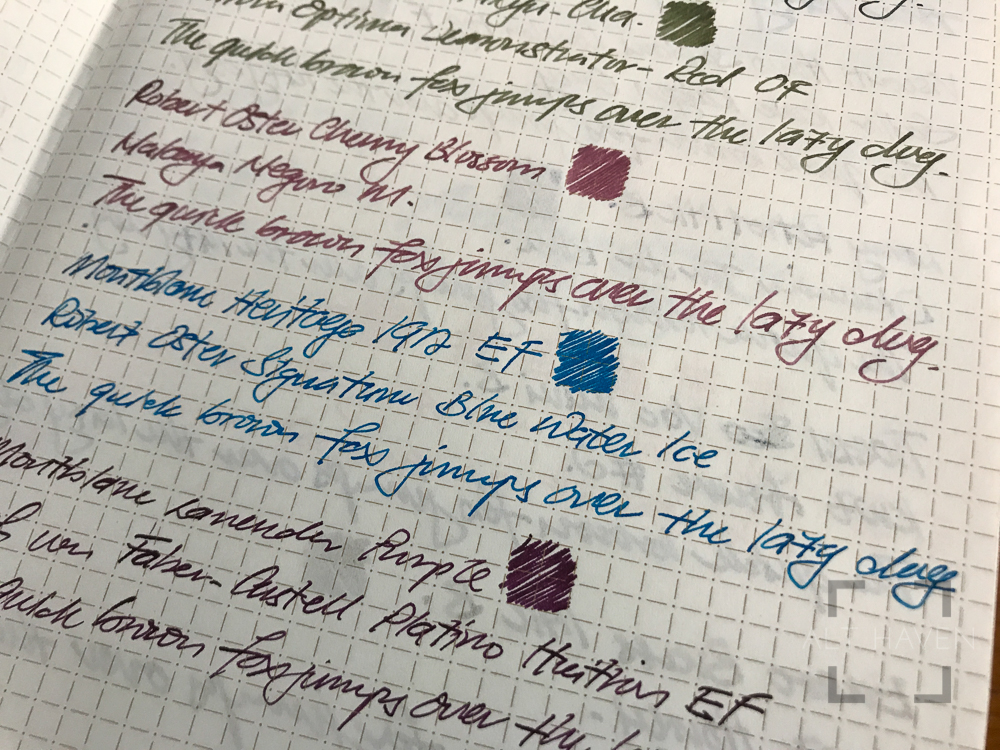 Optima Demonstrator- Red OF
The quick brown fox jumps over the lazy dog.
Robert Oster Cherry Blossom
M.
The quick brown fox jumps over the lazy dog.
Montblanc Heritage 1912 EF
Robert Oster Signature Blue Water Ice
The quick brown fox jumps over the lazy dog
Montblanc Lavender Purple
von Faber-Castell Platino EF
quick brown fox jumps over the
ALT. HAVEN